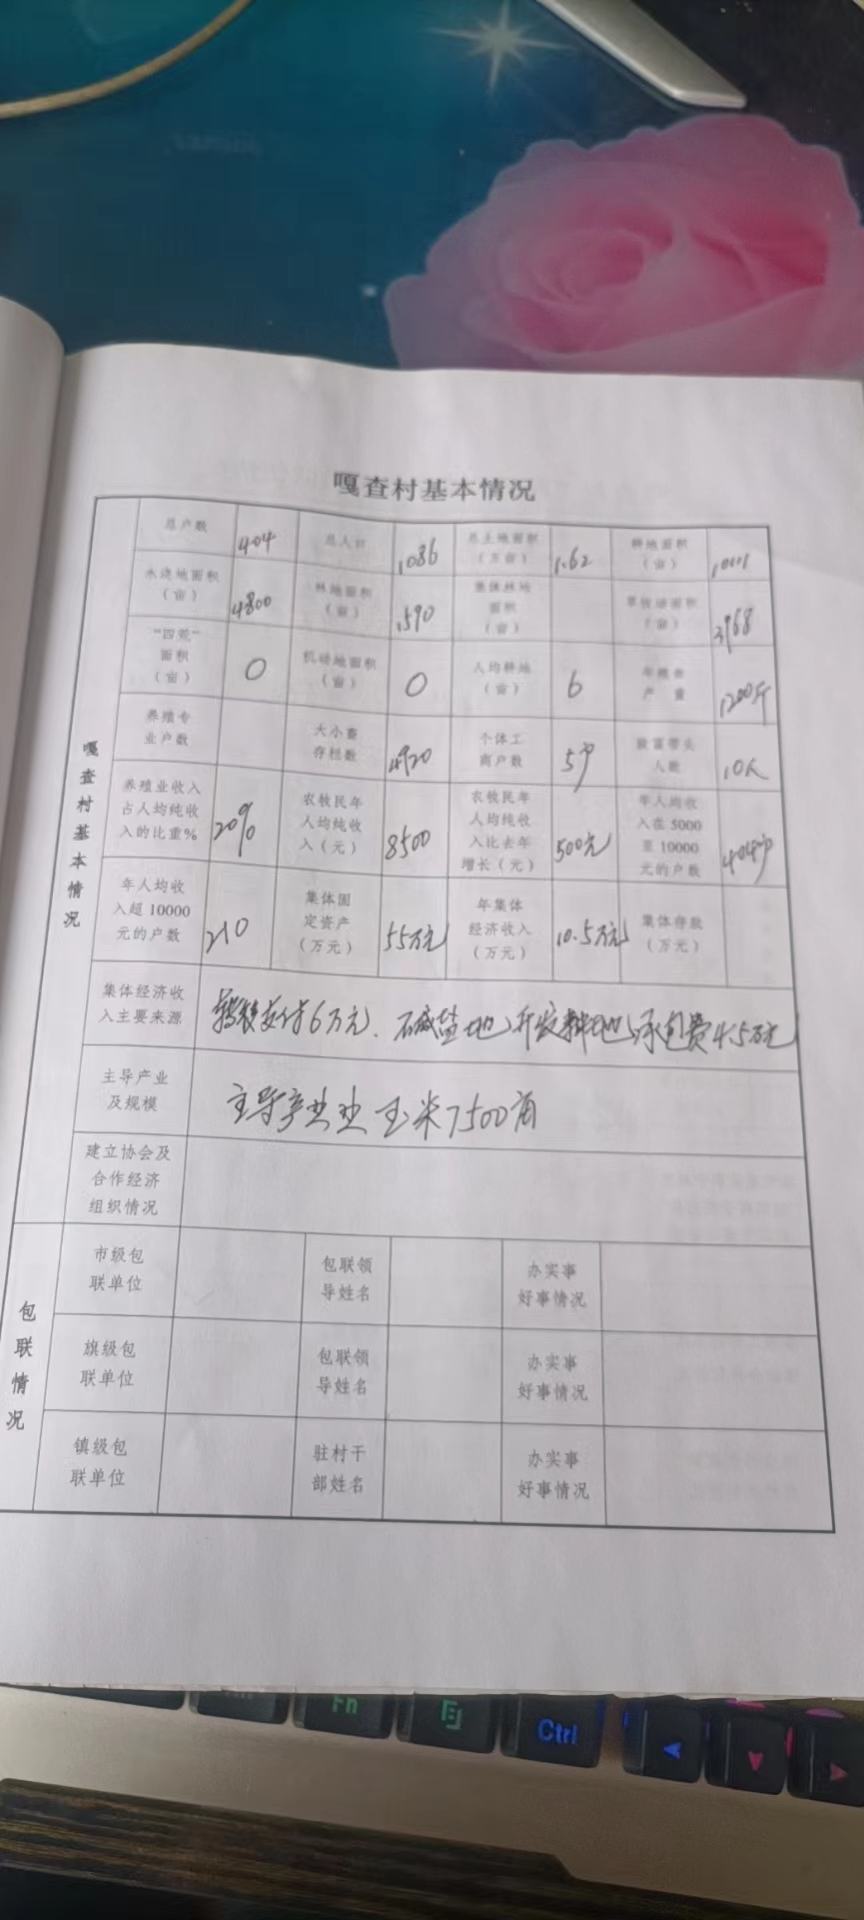 嘎查村基本情况
总户数 404 总人口 1086 总土地面积（万亩） 1.62 耕地面积（亩）
水浇地面积（亩） 4800 林地面积（亩） 1590 集体林地面积（亩） 草牧场面积（亩） 3968
“四荒”面积（亩） 0 机动地面积（亩） 0 人均耕地（亩） 6 年粮食产量 1200斤
养殖专业户数 大小畜存栏数 4920 个体工商户数 5户 致富带头人数 10人
养殖业收入占人均纯收入的比重% 20% 农牧民年人均纯收入（元） 8500 农牧民年人均纯收入比去年增长（元） 500元 年人均收入在5000至10000元的户数 404户
年人均收入超10000元的户数 210 集体固定资产（万元） 55万元 年集体经济收入（万元） 10.5万元 集体存款（万元）
集体经济收入主要来源 转移支付6万元、碱盐地开发耕地承包费4.5万元
主导产业及规模 主导产业 玉米7500亩
建立协会及合作经济组织情况
嘎查村基本情况
市级包联单位 包联领导姓名 办实事好事情况
旗级包联单位 包联领导姓名 办实事好事情况
镇级包联单位 驻村干部姓名 办实事好事情况
包联情况
Fn
Ctrl